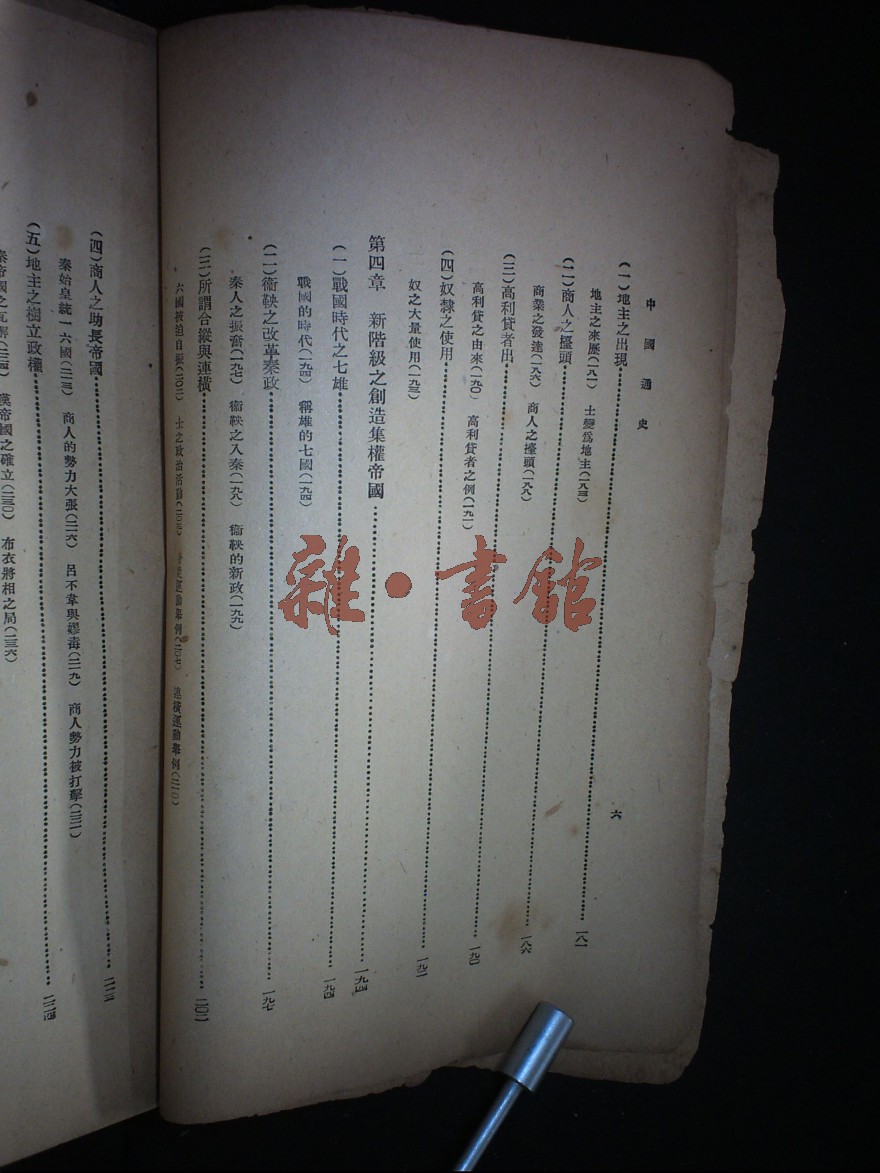 中國通史
六
(一)地主之出現……一八一
地主之來歷(一八一) 士變爲地主(一八三)
(二)商人之擡頭……一八六
商業之發達(一八六) 商人之擡頭(一八八)
(三)高利貸者出……一九〇
高利貸之由來(一九〇) 高利貸者之例(一九一)
(四)奴隸之使用……一九二
奴之大量使用(一九三)
第四章 新階級之創造集權帝國……一九四
(一)戰國時代之七雄……一九四
戰國的時代(一九四) 稱雄的七國(一九四)
(二)衞鞅之改革秦政……一九七
秦人之振奮(一九七) 衞鞅之入秦(一九八) 衞鞅的新政(一九九)
(三)所謂合縱與連橫……二〇二
六國被迫自振(二〇二) 士之政治活動(二〇三) 運動舉例(二〇七) 連橫運動舉例(二一〇)
(四)商人之助長帝國……二一三
秦始皇統一六國(二一三) 商人的勢力大張(二一六) 呂不韋與嫪毐(二一九) 商人勢力被打擊(二二一)
(五)地主之樹立政權……二二四
秦帝國之瓦解(二二四) 漢帝國之確立(二三〇) 布衣將相之局(二三六)
雜·書館